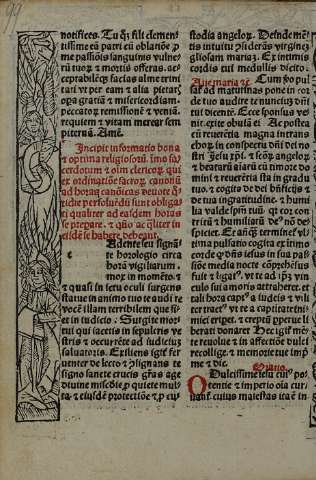 99
notifices. Tu q̄; fili clemen
tissime eā patri cū oblatiōe p
me passiōis sanguinis vulne⁊
rū tuoꝝ ⁊ mortis offeras. ac⁊
ceptabilēq; facias alme trini
tati vt per eam ⁊ alia pietat;
opa gratiā ⁊ misericordiam.
peccatorꝝ remissionē ⁊ veniā.
requiem ⁊ vitam mereꝛ sem
piternā. Amē.
Incipit informatio bona
⁊ optima religiosoꝝ. imo sa⁊
cerdotum ⁊ oim clericoꝝ qui
ex ordinatiōe sacroꝝ canonū
ad horas canōicas deuote q̄
tidie persoluēdū sunt obliga⁊
ti qualiter ad easdem horas
se prepare. ⁊ quō acq̄liter in
eisdē se habere debeant.
te horologio circa
horā vigiliarum.
mor in momēto ⁊
⁊ quasi in ictu oculi surgens
statue in animo tuo te audi re
vocē illam terribilem que fi⁊
et in iudicio. Surgite mor⁊
tui qui iacetis in sepulcris ve
stris ⁊ occurrēte ad iudiciuꝫ
saluatoris. Exsiens igit̄ fer
uenter de lecto ⁊ p̄signans te
signo sancte crucis gr̄as age
diuine misēdie p quiete nul⁊
ta ⁊ eiusdē protectiōe ⁊ p cu⁊
stodia angeloꝝ. Deinde men⁊
tis intuitu p̄siderās virginez
gliosam mariaꝫ. Ex intimis
cordis tui medullis dicito.
Aue maria ⁊c̄. Cum ꝟo pul
saꝛ ad maturinas pone in cor
de tuo audire te nunciuꝫ dn̄i
tui dicentē. Ecce sponsus ve⁊
nit. exite obuiā ei Ac postea
cū reuerētia magna intrans
choꝝ in conspectu dn̄i dei no
stri Jesu xp̄i. ⁊ scōꝝ angeloꝝ
⁊ beataꝝ aīarū cū timore do
mini ⁊ reuerētia sta in gradu
tuo. ⁊ cogits de dei bn̄ficijs ⁊
de tua ingratitudine. ⁊ humi⁊
lia valde spm̄ tuū. qꝛ cor con⁊
tritū ⁊ humiliatū de⁹ nō de⁊
spiciet. Et an̄qꝫ terminet̄ vl
tima pulsatio cogita ex timo
corde q̄ dn̄s iesus in sua pas⁊
siōe media nocte cōprehēsus
fuit ⁊ ligat⁹. vt te ad ip̄ꝫ vin
culo sui amoris attraheret. et
tali hora capt⁹ a iudeis ⁊ vili
ter tract⁹. vt te a captiuitate ini⁊
mici eripet. ⁊ erepti pperue li
berati donaret Hec igit̄ mē⁊
te reuolue ⁊ in affectiōe dulci
recollige. ⁊ memorie tue imp̄
me ⁊ dic. Oratio.
O Dulcissime iesu cui⁹ po⁊
tentie ⁊ imperio oīa cur
uant̄. cuius maiestas ita ē in